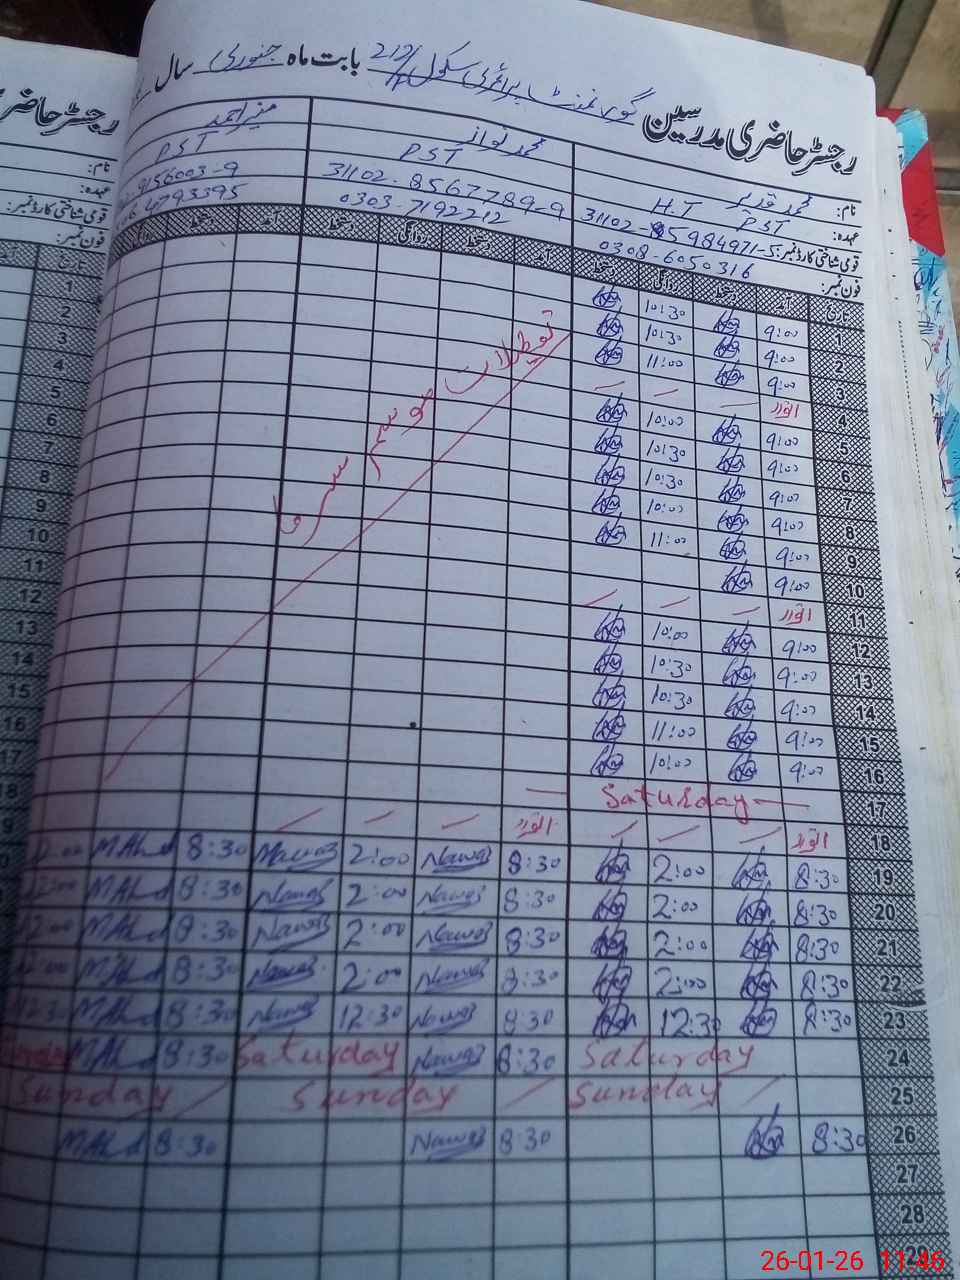 رجسٹر حاضری مدرسین گورنمنٹ پرائمری سکول 212/ بابت ماہ جنوری سال
رجسٹر حاضری
نام: محمد قدیر محمد نواز منیر احمد
عہدہ: PST H.T PST PST
قومی شناختی کارڈ نمبر: 31102-5984971-5 31102-8567789-9 9156003-9
فون نمبر: 0308-6050316 0303-7192212 4793395
نام:
عہدہ:
قومی شناختی کارڈ نمبر:
فون نمبر:
تاریخ آمد دستخط روانگی دستخط آمد دستخط روانگی دستخط آمد دستخط روانگی
تعطیلات موسم سرما
1 9:00 10:30
2 9:00 10:30
3 9:00 11:00
4 اتوار
5 9:00 10:00
6 9:00 10:30
7 9:00 10:30
8 9:00 10:00
9 9:00 11:00
10 9:00
11 اتوار
12 9:00 10:00
13 9:00 10:30
14 9:00 10:30
15 9:00 11:00
16 9:00 10:00
17 Saturday
18 اتوار اتوار
19 8:30 2:00 8:30 Nawaz 2:00 Nawaz 8:30
20 8:30 2:00 8:30 Nawaz 2:00 Nawaz 8:30
21 8:30 2:00 8:30 Nawaz 2:00 Nawaz 8:30
22 8:30 2:00 8:30 Nawaz 2:00 Nawaz 8:30
23 8:30 12:30 8:30 Nawaz 12:30 Nawaz 8:30
24 Saturday 8:30 Nawaz Saturday 8:30
25 Sunday Sunday Sunday
26 8:30 8:30 Nawaz 8:30
27
28
29
1
2
3
4
5
6
7
8
9
10
11
12
13
14
15
16
17
18
26-01-26 11:46